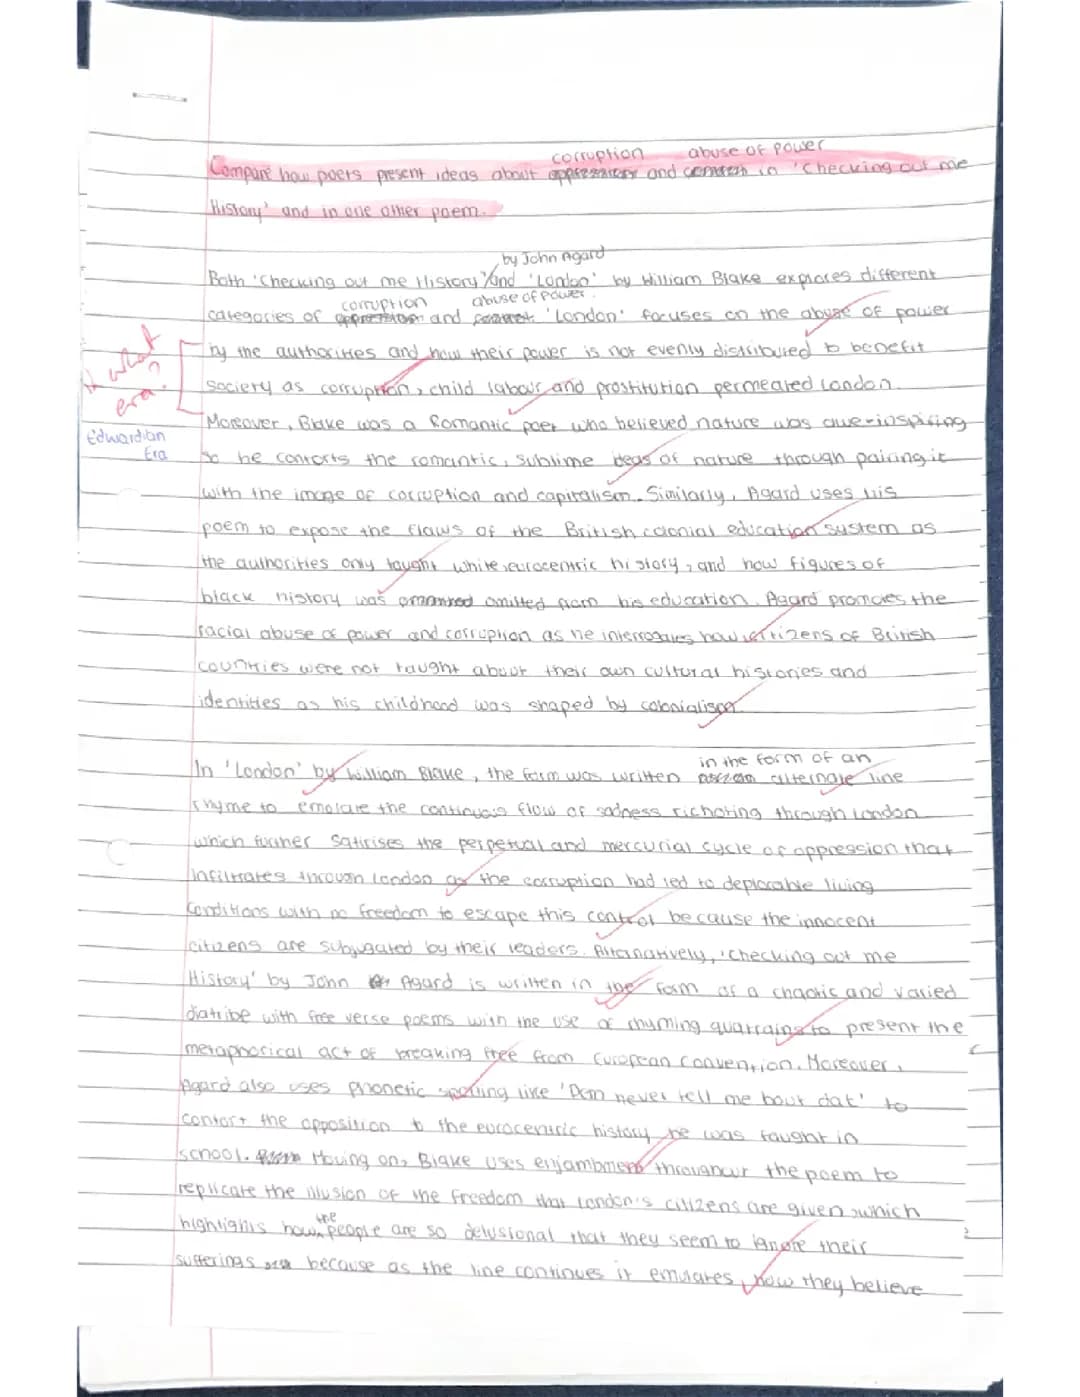 corruption abuse of power
Compare how poets present ideas about oppression and in 'Checking out me
History' and in one other poem.
by John Agard
Both 'Checking out me History' and 'London' by William Blake explores different
corruption abuse of power.
categories of oppression and 'London' focuses on the abuse of power
by the authorities and how their power is not evenly distributed to benefit
society as corruption, child labour and prostitution permeated London.
what era?
Moreover, Blake was a Romantic poet who believed nature was awe-inspiring
Edwardian
Era
so he contorts the romantic, sublime ideas of nature through pairing it
with the image of corruption and capitalism. Similarly, Agard uses his
poem to expose the flaws of the British colonial education system as
the authorities only taught white eurocentric history, and how figures of
black history was omitted from his education. Agard promotes the
racial abuse of power and corruption as he interrogates how citizens of British
countries were not taught about their own cultural histories and
identities as his childhood was shaped by colonialism.
in the form of an
In 'London' by William Blake, the form was written alternate line
rhyme to emolate the continuous flow of sadness richoting through London
which further satirises the perpetual and mercurial cycle of oppression that
infiltrates through London as the corruption had led to deplorable living
conditions with no freedom to escape this control because the innocent
citizens are subjugated by their leaders. Altanatively, 'Checking out me
History' by John Agard is written in the form of a chaotic and varied
diatribe with free verse poems with the use of rhyming quatrains to present the
metaphorical act of breaking free from European convention. Moreover,
Agard also uses phonetic spelling like 'Dem never tell me bout dat' to
contort the opposition to the eurocentric history he was taught in
school. Moving on, Blake uses enjambment throughout the poem to
replicate the illusion of the freedom that London's citizens are given which
the
highlights how people are so delusional that they seem to ignore their
sufferings because as the line continues it emulates how they believe